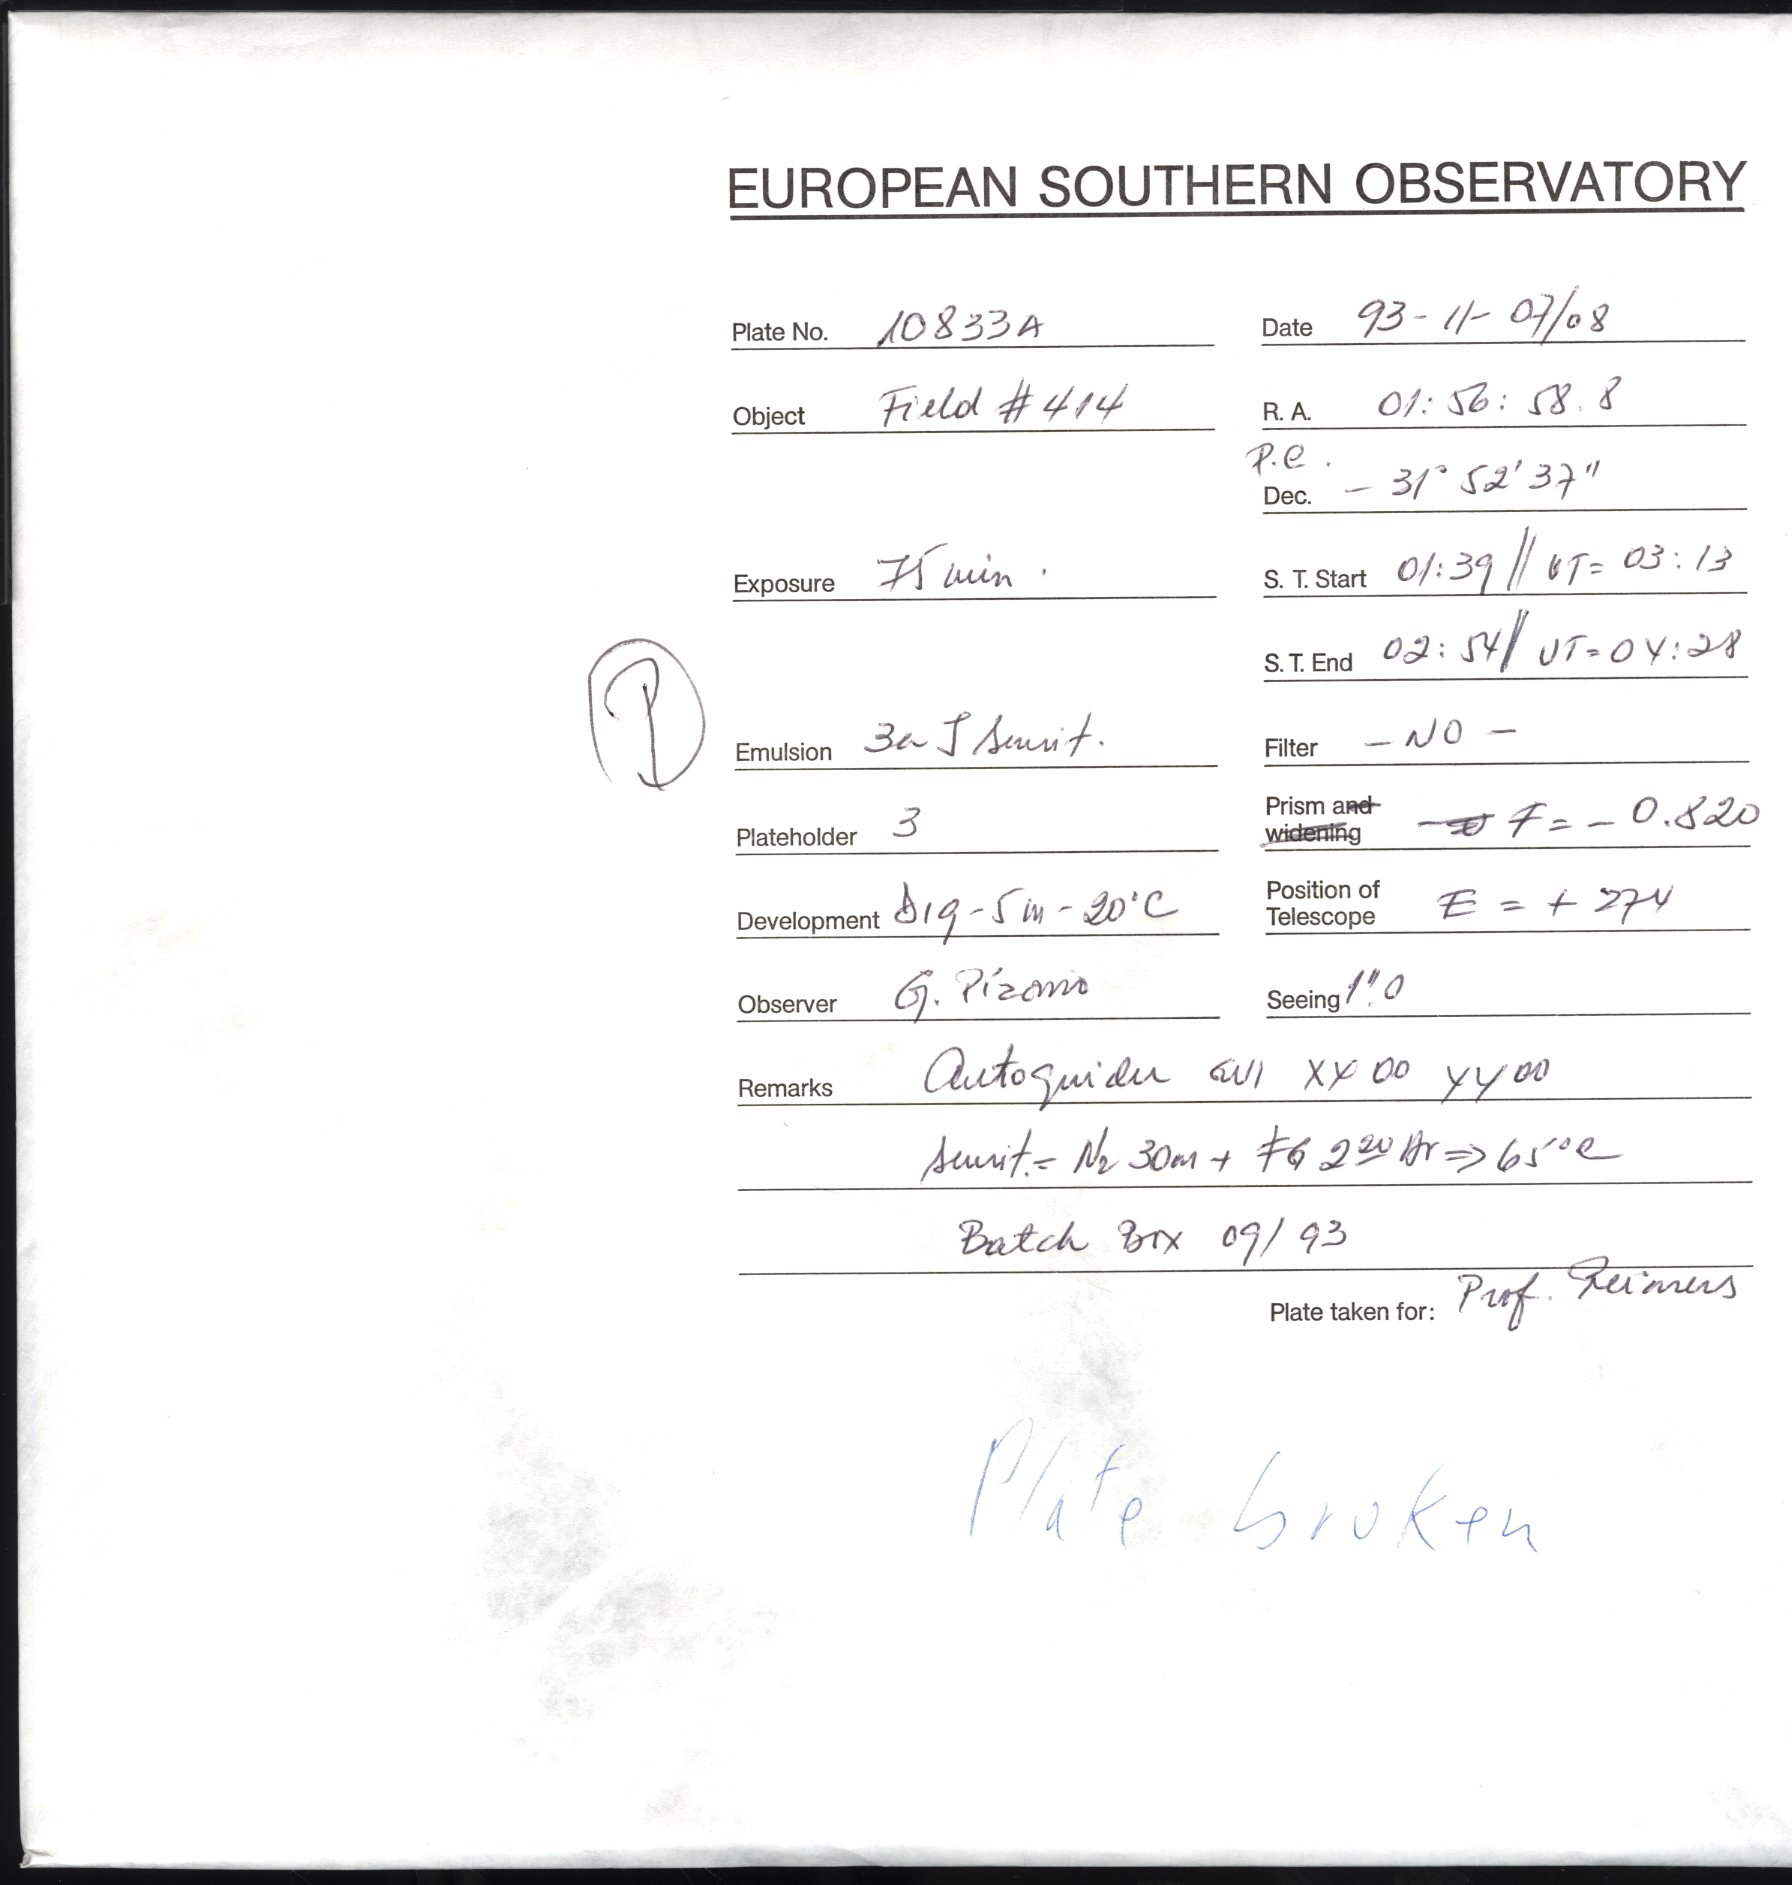 EUROPEAN SOUTHERN OBSERVATORY
Plate No. 10833A Date 93-11-07/08
Object Field #414 R. A. 01:56:58.8
P.C.
Dec. -31°52'37"
Exposure 75 min. S. T. Start 01:39 // UT= 03:13
S. T. End 02:54 // UT=04:28
P
Emulsion 3a J Sensit. Filter - NO -
Plateholder 3 Prism and widening F= - 0.820
Development D19-5m-20°C Position of Telescope E = + 274
Observer G. Pizarro Seeing 1".0
Remarks Autoguider XX 00 YY 00
Sensit.= N2 30m + FG 2 20 Hr => 65°C
Batch Box 09/93
Plate taken for: Prof. Reimers
Plate broken